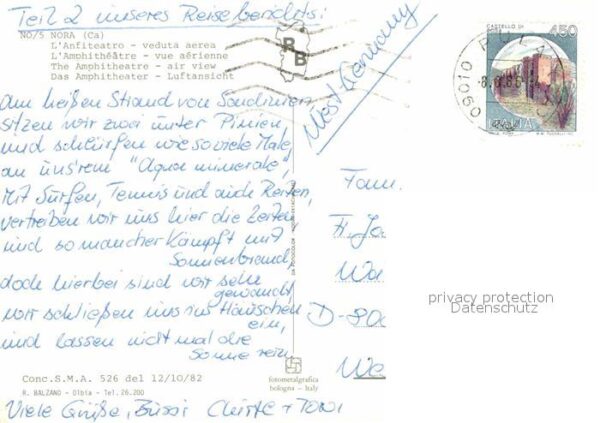 Teil 2 unseres Reiseberichts:
NO/5 NORA (Ca)
L'Anfiteatro - veduta aerea
L'Amphithéâtre - vue aérienne
The Amphitheatre - air view
Das Amphitheater - Luftansicht
RB
West Germany
CASTELLO DI
450
09010 PULA
ITALIA
Am heißen Strand von Sardinien
sitzen wir zwei unter Pinien
und schlürfen wie so viele Male
an uns'rem "Aqua minerale",
Mit Surfen, Tennis und auch Reiten,
vertreiben wir uns hier die Zeiten
und so mancher kämpft mit
Sonnenbrand
doch hierbei sind wir sehr
gewandt
wir schließen uns ins Häuschen
ein,
und lassen nicht mal die
Sonne rein.
Fam.
H. Ja
Wa
D-80
We
privacy protection
Datenschutz
Conc. S.M.A. 526 del 12/10/82
R. BALZANO - Olbia - Tel. 26.200
fotometalgrafica
bologna - Italy
Viele Grüße, Bussi Christe + Toni